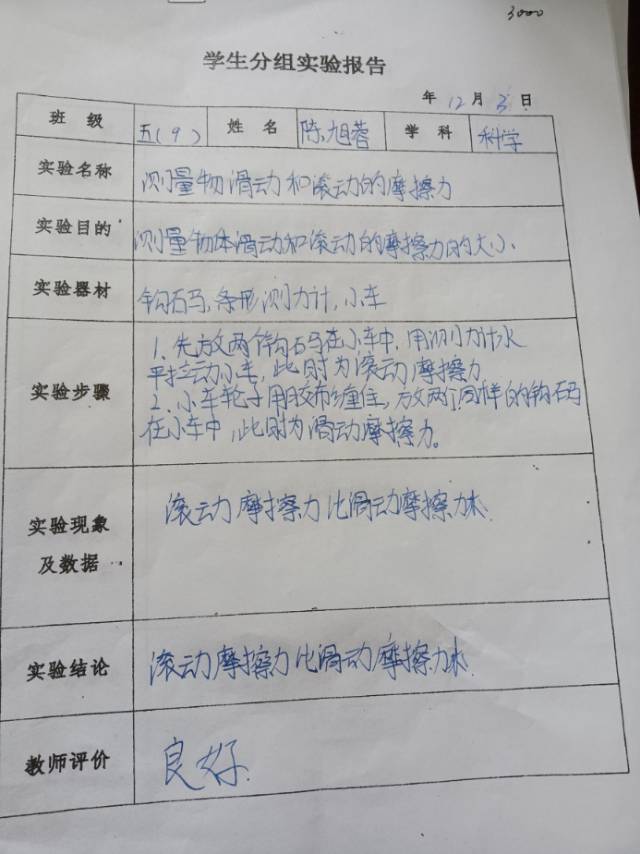 3000
学生分组实验报告
年 12月 3日
班级 五(9) 姓名 陈旭蓉 学科 科学
实验名称 测量物滑动和滚动的摩擦力
实验目的 测量物体滑动和滚动的摩擦力的大小.
实验器材 钩石马,条形测力计,小车
实验步骤
1、先放两个钩石马在小车中,用测力计水
平拉动小车,此时为滚动摩擦力
2、小车轮子用胶布缠住,放两个同样的钩石马
在小车中,此时为滑动摩擦力。
实验现象
及数据
滚动摩擦力比滑动摩擦力
实验结论 滚动摩擦力比滑动摩擦力
教师评价 良好.